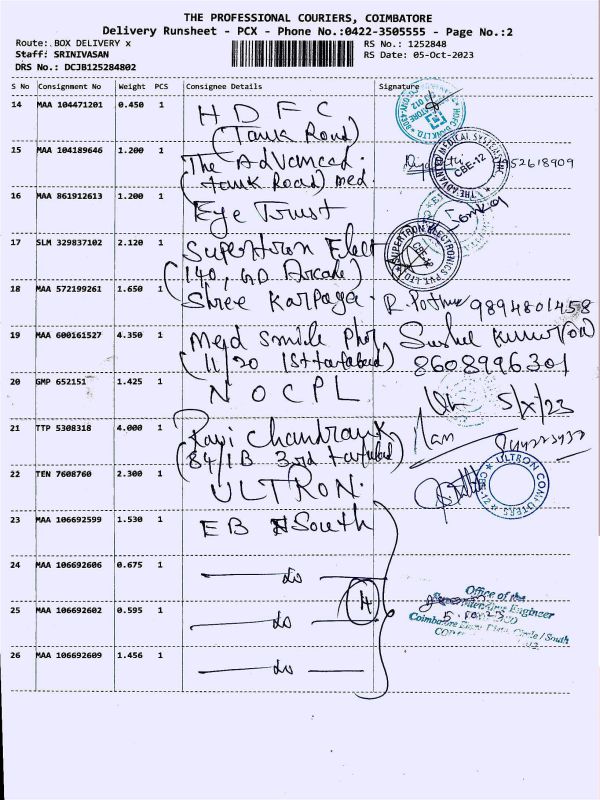 THE PROFESSIONAL COURIERS, COIMBATORE
Delivery Runsheet - PCX - Phone No.:0422-3505555 - Page No.:2
Route: BOX DELIVERY x
RS No.: 1252848
Staff: SRINIVASAN
RS Date: 05-Oct-2023
DRS No.: DCJB125284802
S No Consignment No Weight PCS Consignee Details Signature
14 MAA 104471201 0.450 1 HDFC
(Tank Road)
15 MAA 104189646 1.200 1 The Advanced
(tank Road) med.
16 MAA 861912613 1.200 1 Eye Trust
17 SLM 329837102 2.120 1 Supertron Elect
(140, GD Arcade)
18 MAA 572199261 1.650 1 Shree Karpaga 9894801458
19 MAA 600161527 4.350 1 Med Smile Sushil Kumar
(11/20 8608996301
20 GMP 652151 1.425 1 NOCPL 5/X/23
21 TTP 5308318 4.000 1 Ravi
(84/1B 3rd
22 TEN 7608760 2.300 1 ULTRON.
ULTRON COMPUTERS
CBE-12
23 MAA 106692599 1.530 1 EB South
24 MAA 106692606 0.675 1 do
4
25 MAA 106692602 0.595 1 do
Office of the
Engineer
Circle / South
26 MAA 106692609 1.456 1 do
THE ADVANCED MEDICAL SYSTEMS
CBE-12
SUPERTRON ELECTRONICS PVT. LTD
CBE-12